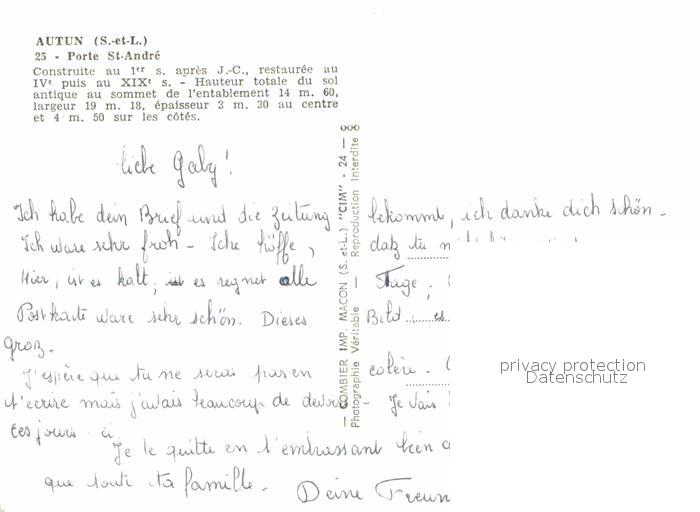 AUTUN (S.-et-L.)
25 - Porte St-André
Construite au 1er s. après J.-C., restaurée au
IVe puis au XIXe s. - Hauteur totale du sol
antique au sommet de l'entablement 14 m. 60,
largeur 19 m. 18, épaisseur 3 m. 30 au centre
et 4 m. 50 sur les côtés.
liebe Gaby!
Ich habe dein Brief und die zeitung bekommt, ich danke dich schön -
Ich ware sehr froh - Iche höffe, datz tu
Hier, ist es kalt, es regnet alle Tage.
Postkarte ware sehr schön. Dieses Bild es
groz.
J'espère que tu ne serais pas en colère.
t'écrire mais j'avais beaucoup de devoirs - Je vais
ces jours ci
Je te quitte en t'embrassant bien
que toute ta famille.
Deine Freun
— COMBIER IMP. MACON (S.-et-L.) "CIM" - 24 — 000
Photographie Véritable | Reproduction Interdite
privacy protection
Datenschutz